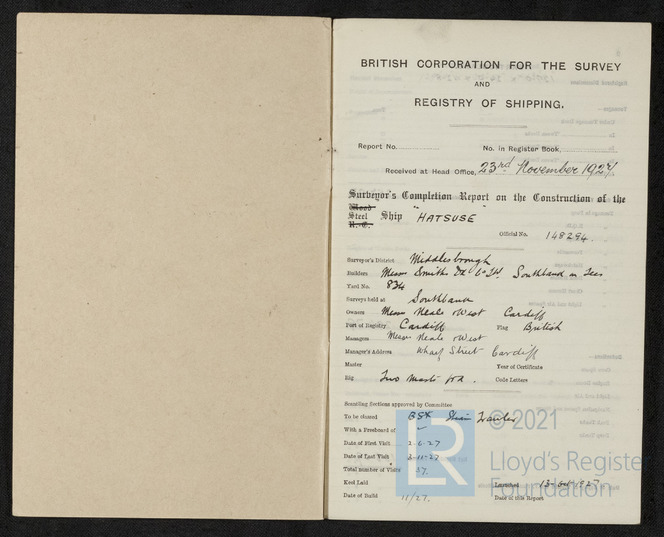 BRITISH CORPORATION FOR THE SURVEY
AND
REGISTRY OF SHIPPING.
Report No. No. in Register Book,
Received at Head Office, 23rd November 1927.
Surveyor's Completion Report on the Construction of the
Wood
Steel Ship "HATSUSE"
R.-C.
Official No. 148294.
Surveyor's District Middlesbrough
Builders Messrs Smiths Dk Co Ltd. Southbank on Tees
Yard No. 834
Surveys held at Southbank
Owners Messrs Neale & West Cardiff
Port of Registry Cardiff Flag British
Managers Messrs Neale & West
Manager's Address Wharf Street Cardiff
Master Year of Certificate
Rig Two Masts Code Letters
Scantling Sections approved by Committee
To be classed BS* Steam Trawler
With a Freeboard of
Date of First Visit 2.6.27
Date of Last Visit 3-11-27
Total number of Visits 37.
Keel Laid Launched 13-Oct-1927
Date of Build 11/27. Date of this Report
© 2021
LR
Lloyd's Register
Foundation